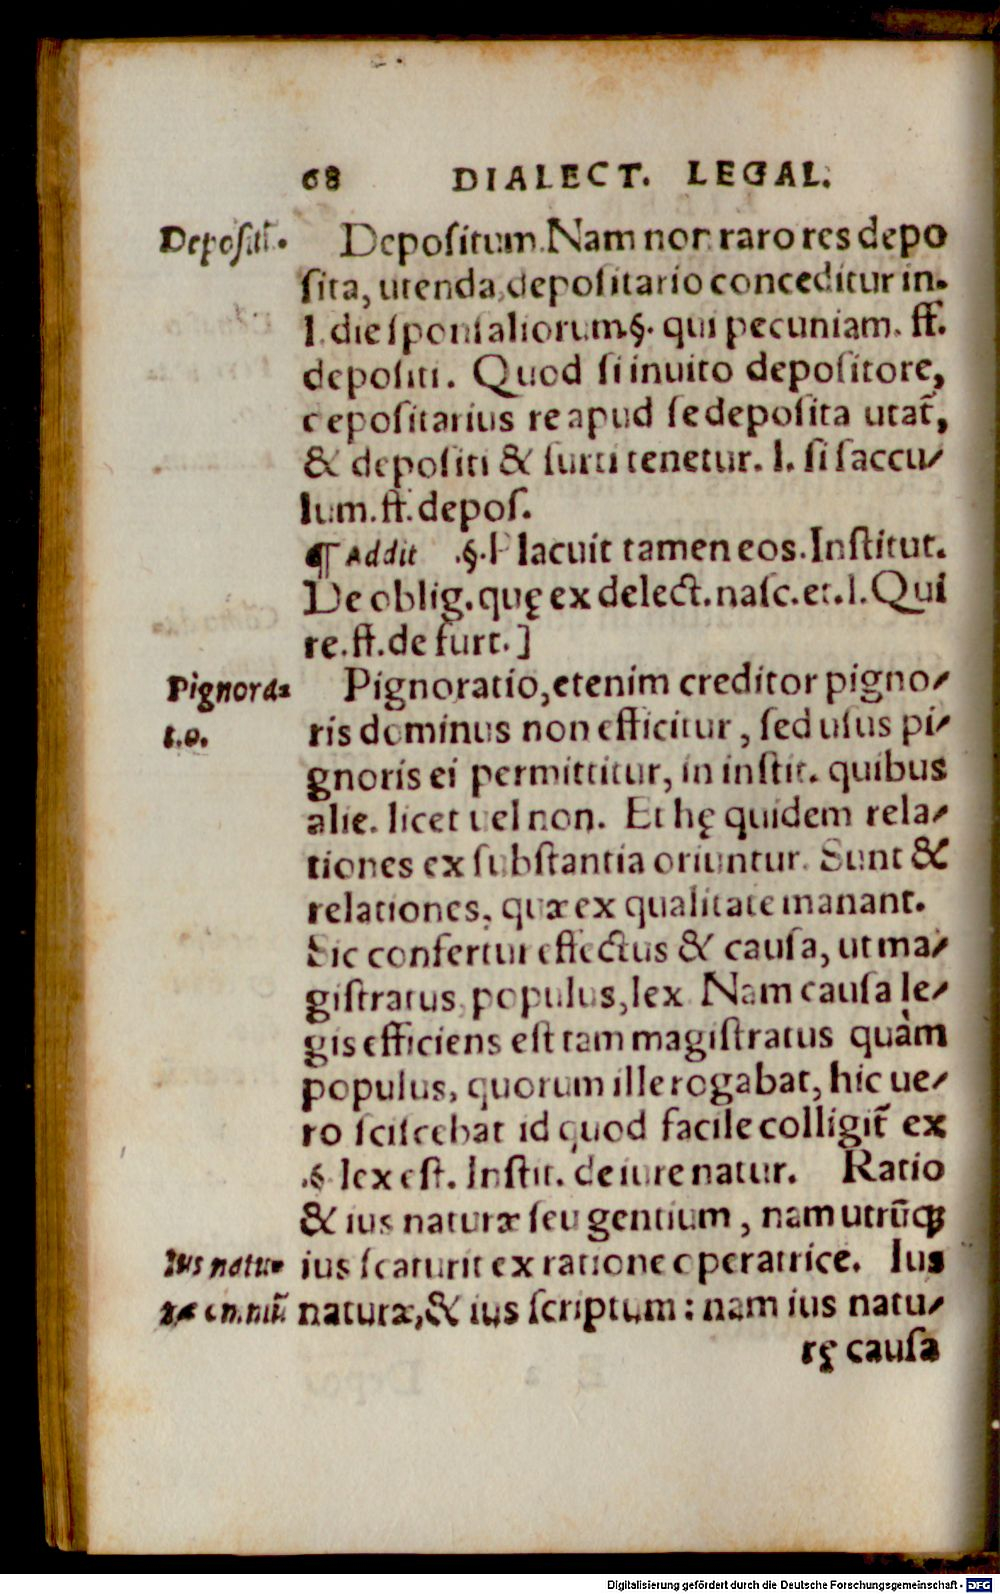 68 DIALECT. LEGAL.
Depositũ.
Depositum. Nam non raro res depo
sita, utenda, depositario conceditur in.
l. die sponsaliorum. §. qui pecuniam. ff.
depositi. Quod si inuito depositore,
depositarius re apud se deposita utat̃,
& depositi & furti tenetur. l. si saccu/
lum. ff. depos.
¶ Addit .§. Placuit tamen eos. Institut.
De oblig. quę ex delect. nasc. et. l. Qui
re. ff. de furt. ]
Pignora=
t.o.
Pignoratio, etenim creditor pigno/
ris dominus non efficitur, sed usus pi/
gnoris ei permittitur, in instit. quibus
alie. licet uel non. Et hę quidem rela/
tiones ex substantia oriuntur. Sunt &
relationes, quæ ex qualitate manant.
Sic confertur effectus & causa, ut ma/
gistratus, populus, lex. Nam causa le/
gis efficiens est tam magistratus quàm
populus, quorum ille rogabat, hic ue/
ro sciscebat id quod facile colligit̃ ex
.§ lex est. Instit. de iure natur. Ratio
& ius naturæ seu gentium, nam utrũq;
Ius natu=
ræ cõmũ
ius scaturit ex ratione operatrice. Ius
naturæ, & ius scriptum : nam ius natu/
rę causa
Digitalisierung gefördert durch die Deutsche Forschungsgemeinschaft - DFG